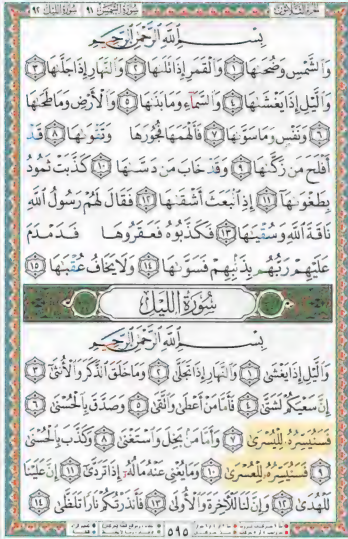 الجزء الثلاثون سورة الشمس ٩١ سورة الليل ٩٢
بِسْمِ اللَّهِ الرَّحْمَٰنِ الرَّحِيمِ
وَالشَّمْسِ وَضُحَىٰهَا ١ وَالْقَمَرِ إِذَا تَلَىٰهَا ٢ وَالنَّهَارِ إِذَا جَلَّىٰهَا ٣
وَالَّيْلِ إِذَا يَغْشَىٰهَا ٤ وَالسَّمَآءِ وَمَا بَنَىٰهَا ٥ وَالْأَرْضِ وَمَا طَحَىٰهَا
٦ وَنَفْسٍ وَمَا سَوَّىٰهَا ٧ فَأَلْهَمَهَا فُجُورَهَا وَتَقْوَىٰهَا ٨ قَدْ
أَفْلَحَ مَن زَكَّىٰهَا ٩ وَقَدْ خَابَ مَن دَسَّىٰهَا ١٠ كَذَّبَتْ ثَمُودُ
بِطَغْوَىٰهَآ ١١ إِذِ انۢبَعَثَ أَشْقَىٰهَا ١٢ فَقَالَ لَهُمْ رَسُولُ اللَّهِ
نَاقَةَ اللَّهِ وَسُقْيَٰهَا ١٣ فَكَذَّبُوهُ فَعَقَرُوهَا فَدَمْدَمَ
عَلَيْهِمْ رَبُّهُم بِذَنۢبِهِمْ فَسَوَّىٰهَا ١٤ وَلَا يَخَافُ عُقْبَٰهَا ١٥
سُورَةُ اللَّيْلِ
بِسْمِ اللَّهِ الرَّحْمَٰنِ الرَّحِيمِ
وَالَّيْلِ إِذَا يَغْشَىٰ ١ وَالنَّهَارِ إِذَا تَجَلَّىٰ ٢ وَمَا خَلَقَ الذَّكَرَ وَالْأُنثَىٰٓ ٣
إِنَّ سَعْيَكُمْ لَشَتَّىٰ ٤ فَأَمَّا مَنْ أَعْطَىٰ وَاتَّقَىٰ ٥ وَصَدَّقَ بِالْحُسْنَىٰ ٦
فَسَنُيَسِّرُهُۥ لِلْيُسْرَىٰ ٧ وَأَمَّا مَنۢ بَخِلَ وَاسْتَغْنَىٰ ٨ وَكَذَّبَ بِالْحُسْنَىٰ
٩ فَسَنُيَسِّرُهُۥ لِلْعُسْرَىٰ ١٠ وَمَا يُغْنِى عَنْهُ مَالُهُۥٓ إِذَا تَرَدَّىٰٓ ١١ إِنَّ عَلَيْنَا
لَلْهُدَىٰ ١٢ وَإِنَّ لَنَا لَلْآخِرَةَ وَالْأُولَىٰ ١٣ فَأَنذَرْتُكُمْ نَارًا تَلَظَّىٰ ١٤
٥٩٥